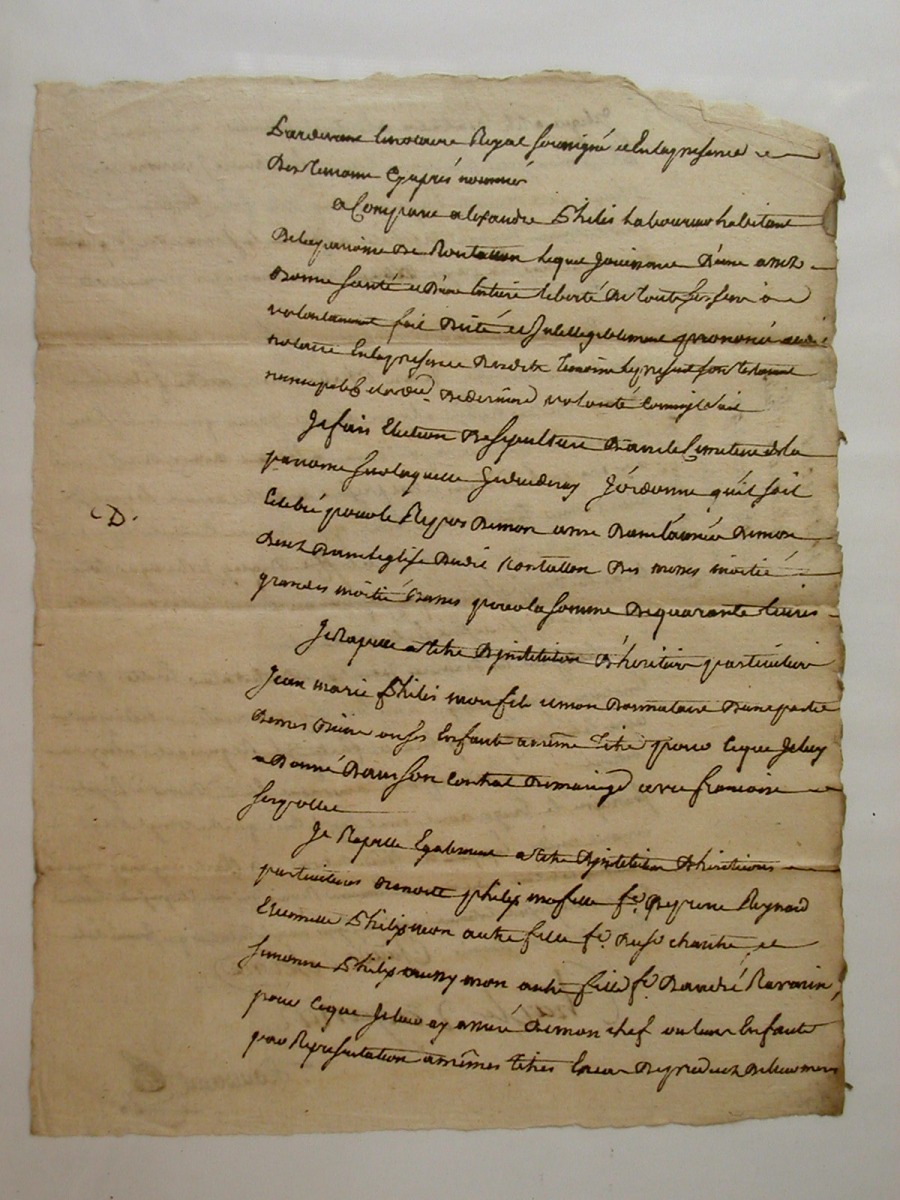 Pardevant le notaire Royal soussigné et En la presence
Des temoins Cy après nommés
a Comparu alexandre Philis laboureur habitant
De la paroisse De Rontallon lequel Jouissant D'une assez
Bonne santé et D'une Entiere liberté De tout ses sens a
volontairement fait Dicté et Intelligiblement prononcé audit
notaire En la presence Desdits temoins le present son testament
nuncupatif et ord.re De derniere volonté Comme s'ensuit
Je fais Election De sepulture Dans le Cimetiere de la
paroisse sur laquelle Je decederay J'ordonne qu'il soit
Celebré pour le Repos De mon ame Dans l'année De mon
Decez Dans l'eglise Dudit Rontallon Des messes moitié
grandes moitié Basses pour la somme De quarante livres
Je Rapelle a titre D'institution D'heritier particulier
Jean marie Philis mon fils et mon Donnataire D'une partie
De mes Biens ou ses Enfants a même titre pour Ce que Je luy
a Donné Dans son Contrat De mariage avec francoise
CD.
Je Rapelle Egalement a titre D'institution D'heritieres
particulieres Benoitte philis ma fille f.e De pierre Reynard
Philis mon autre fille f.e charite et
Simonne Philis aussy mon autre fille f.e D'andré Ravarin
pour Ce que Je leur ay assuré De mon chef ou leurs Enfants
par Representation a mêmes titres De leur mere